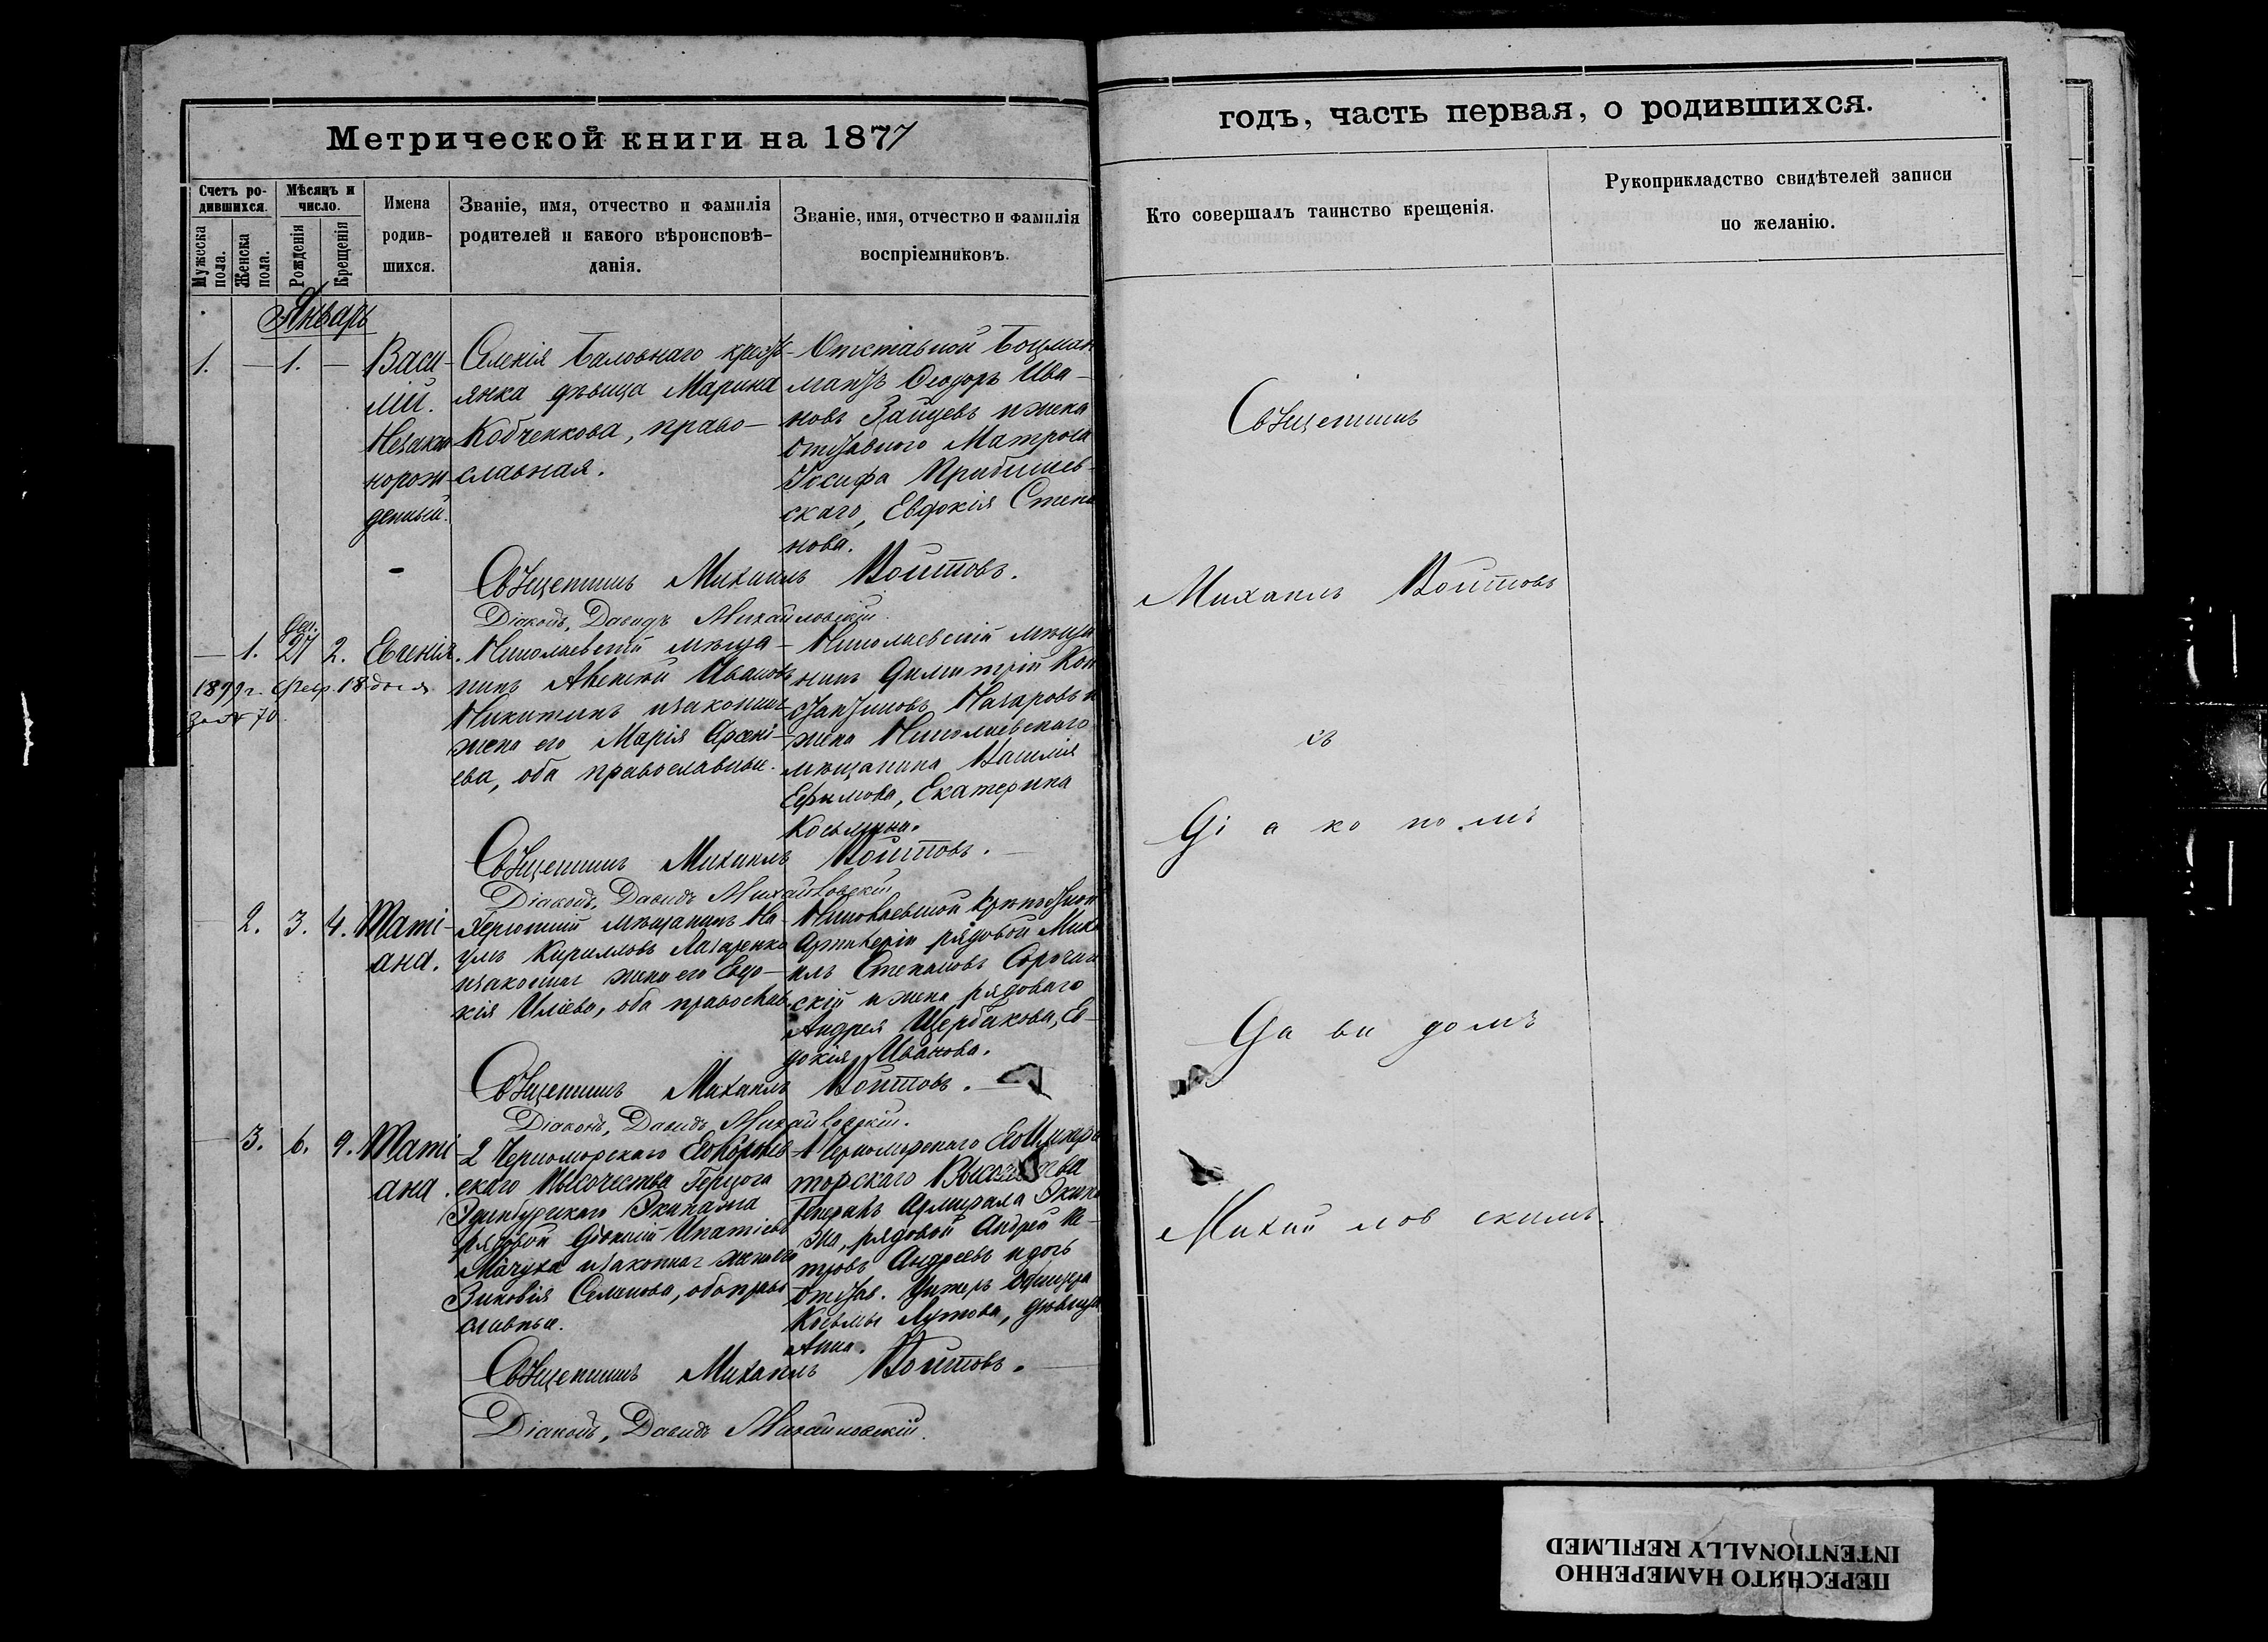 Метрической книги на 1877
Счетъ ро-
дившихся.
Мужеска пола.
Женска пола.
Мѣсяцъ и
число.
Рожденія
Крещенія
Имена
родив-
шихся.
Званіе, имя, отчество и фамилія
родителей и какого вѣроисповѣ-
данія.
Званіе, имя, отчество и фамилія
воспріемниковъ.
Январь
1. — 1. —
Васи-
лій.
Незако
норож
денный.
Селенія Баловнаго крестъ-
янка дѣвица Марина
Кобченкова, право-
славная.
Отставной Боцман
матъ Ѳеодоръ Ива-
новъ Зайцевъ и жена
отставного Матроса
Іосифа
скаго, Евдокія Степа
нова.
Священникъ Михаилъ Войтовъ.
Діаконъ, Давидъ Михайловскій
— 1. Дек. 27 2.
1899 г. Февр. 18 дня
70
Евгенія.
Николаевскій мѣща-
нинъ Ивановъ
Никитинъ и законная
жена его Марія Арсені-
ева, оба православные.
Николаевскій мѣща
нинъ Димитрій Кон
стантиновъ Назаровъ и
жена Николаевскаго
мѣщанина Василія
Ефимова, Екатерина
Косьмина.
Священникъ Михаилъ Войтовъ.
Діаконъ, Давидъ Михайловскій
— 2. 3. 4.
Таті-
ана.
Херсонскій мѣщанинъ На-
умъ Кирилловъ Лазаренко
и законная жена его Евдо-
кія Иліева, оба православ.
Николаевской крѣпостной
Артилеріи рядовой Миха
илъ Степановъ
скій и жена рядоваго
Андрея Щербакова, Ев-
докія Иванова.
Священникъ Михаилъ Войтовъ.
Діаконъ, Давидъ Михайловскій.
— 3. 6. 9.
Таті-
ана.
2 Черноморскаго Его Королев-
скаго Высочества Герцога
Эдинбургскаго Экипажа
рядовой Діонисій Ипатіевъ
Мачуха и законная жена его
Зиновія Семенова, оба право
славные.
Черноморскаго Его Импера
торскаго Высочества
Генералъ Адмирала Экипа
жа, рядовой Андрей Пе-
тровъ Андреевъ и дочь
отстав. Унтеръ Офицера
Косьмы Лутова, дѣвица
Анна.
Священникъ Михаилъ Войтовъ.
Діаконъ, Давидъ Михайловскій.
годъ, часть первая, о родившихся.
Кто совершалъ таинство крещенія.
Рукоприкладство свидѣтелей записи
по желанію.
Священникъ
Михаилъ Войтовъ
съ
Діакономъ
Давидомъ
Михайловскимъ.
ПЕРЕСНЯТО НАМЕРЕННО
INTENTIONALLY REFILMED